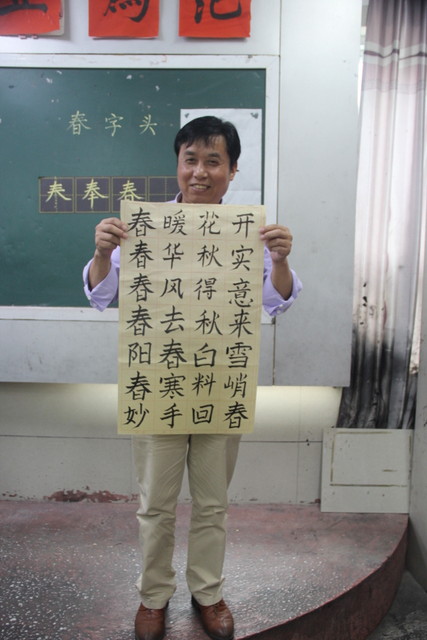 春字头
奉春
春暖花开
春华秋实
春风得意
春去秋来
阳春白雪
春寒料峭
妙手回春